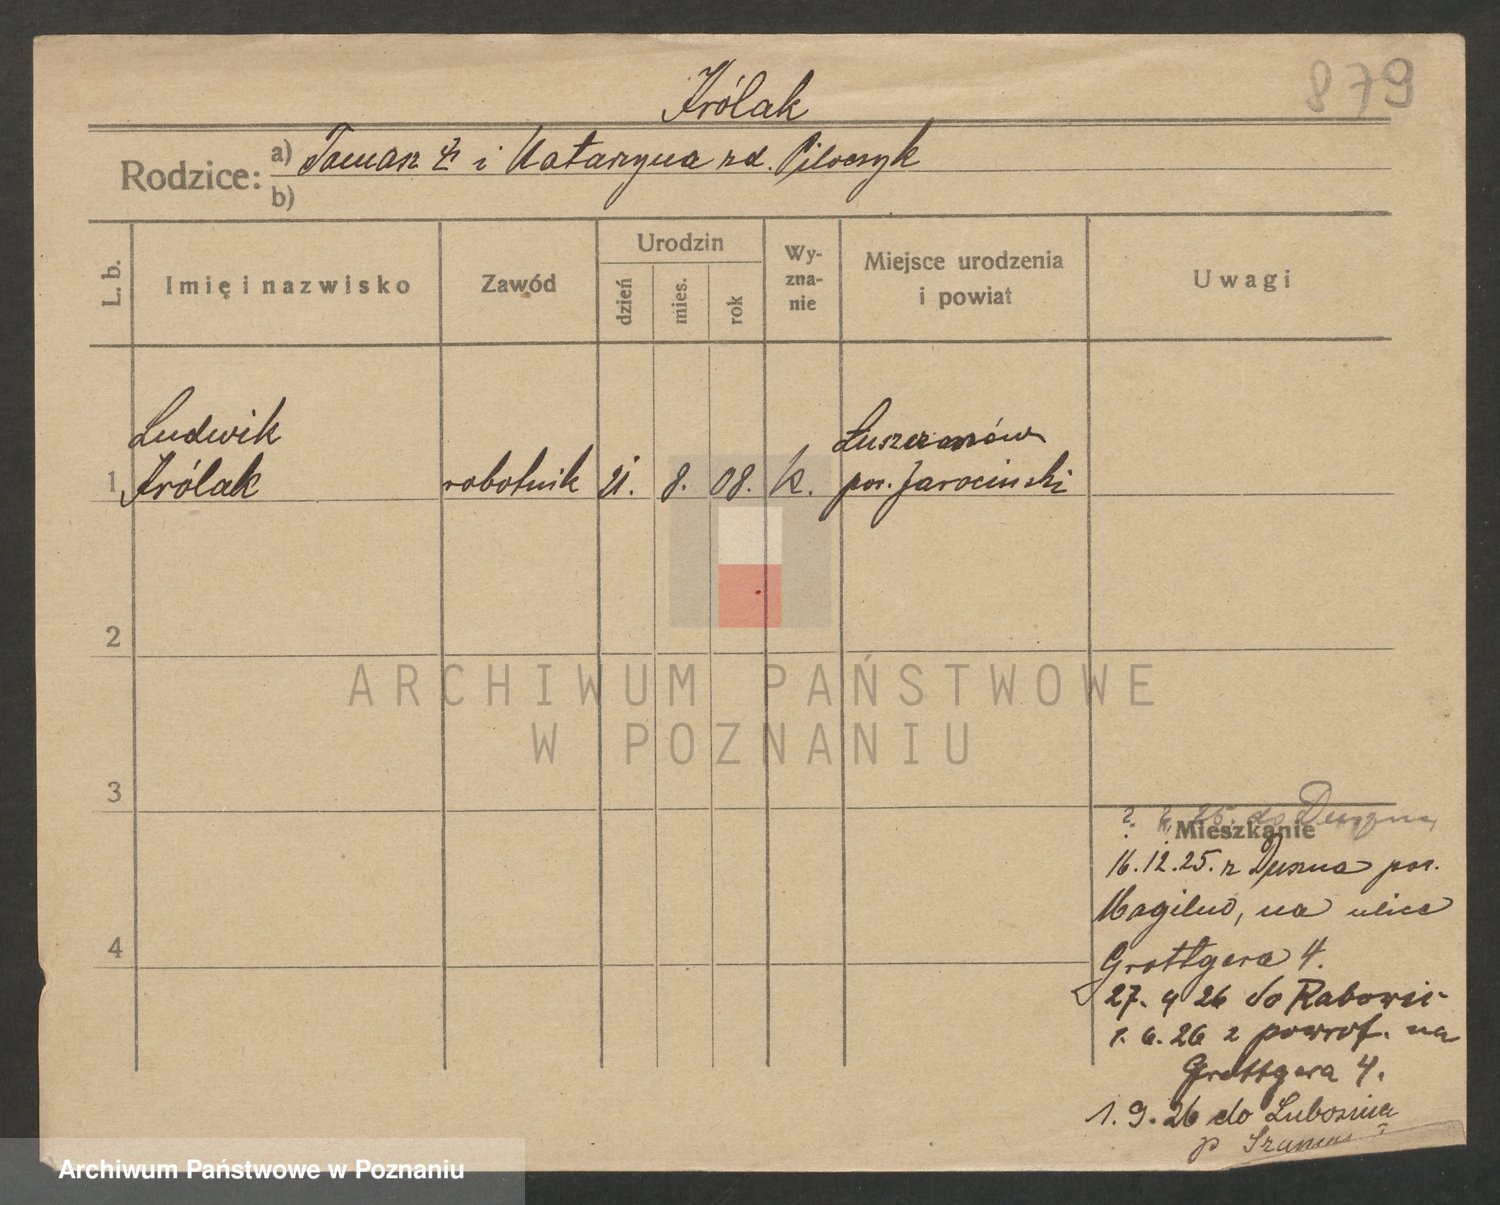 879
Królak
Rodzice: a) Tomasz i Katarzyna zd.
b)
L. b.
Imię i nazwisko
Zawód
Urodzin
dzień
mies.
rok
Wy-
zna-
nie
Miejsce urodzenia
i powiat
Uwagi
Ludwik
1 Królak
robotnik 21. 8. 08. k.
pow. Jarociński
2
3
4
ARCHIWUM PAŃSTWOWE
W POZNANIU
25. do Duszna
Mieszkanie
16.12.25. z Duszna pow.
Mogilno, na ulicę
Grottgera 4.
27. 4 26 do
1. 6. 26 z powrot. na
Grottgera 4.
1. 9. 26 do Lubosina
p
Archiwum Państwowe w Poznaniu